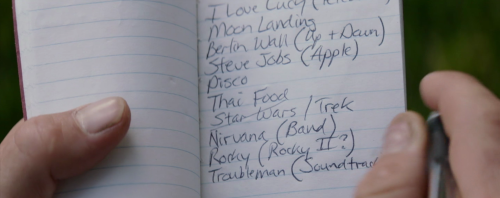 I Love Lucy (
Moon Landing
Berlin Wall (Up + Down)
Steve Jobs (Apple)
Disco
Thai Food
Star Wars / Trek
Nirvana (Band)
Rocky (Rocky II?)
Troubleman (Soundtrac